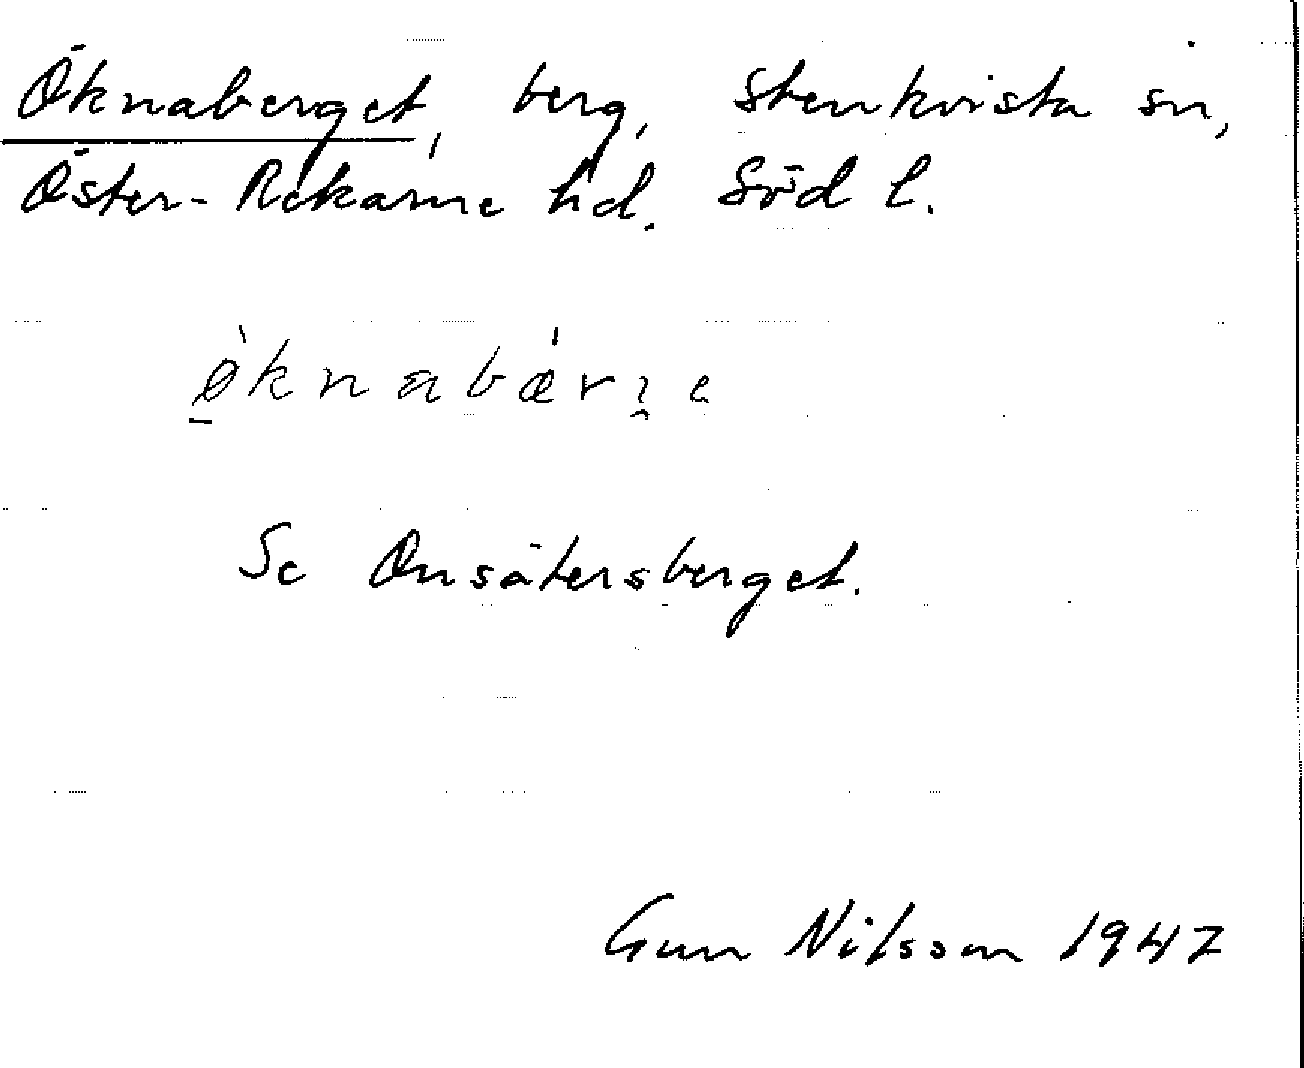 Öknaberget, berg, Stenkvista sn,
Öster-Rekarne hd. Söd l.
Se Onsätersberget.
Gun Nilsson 1947